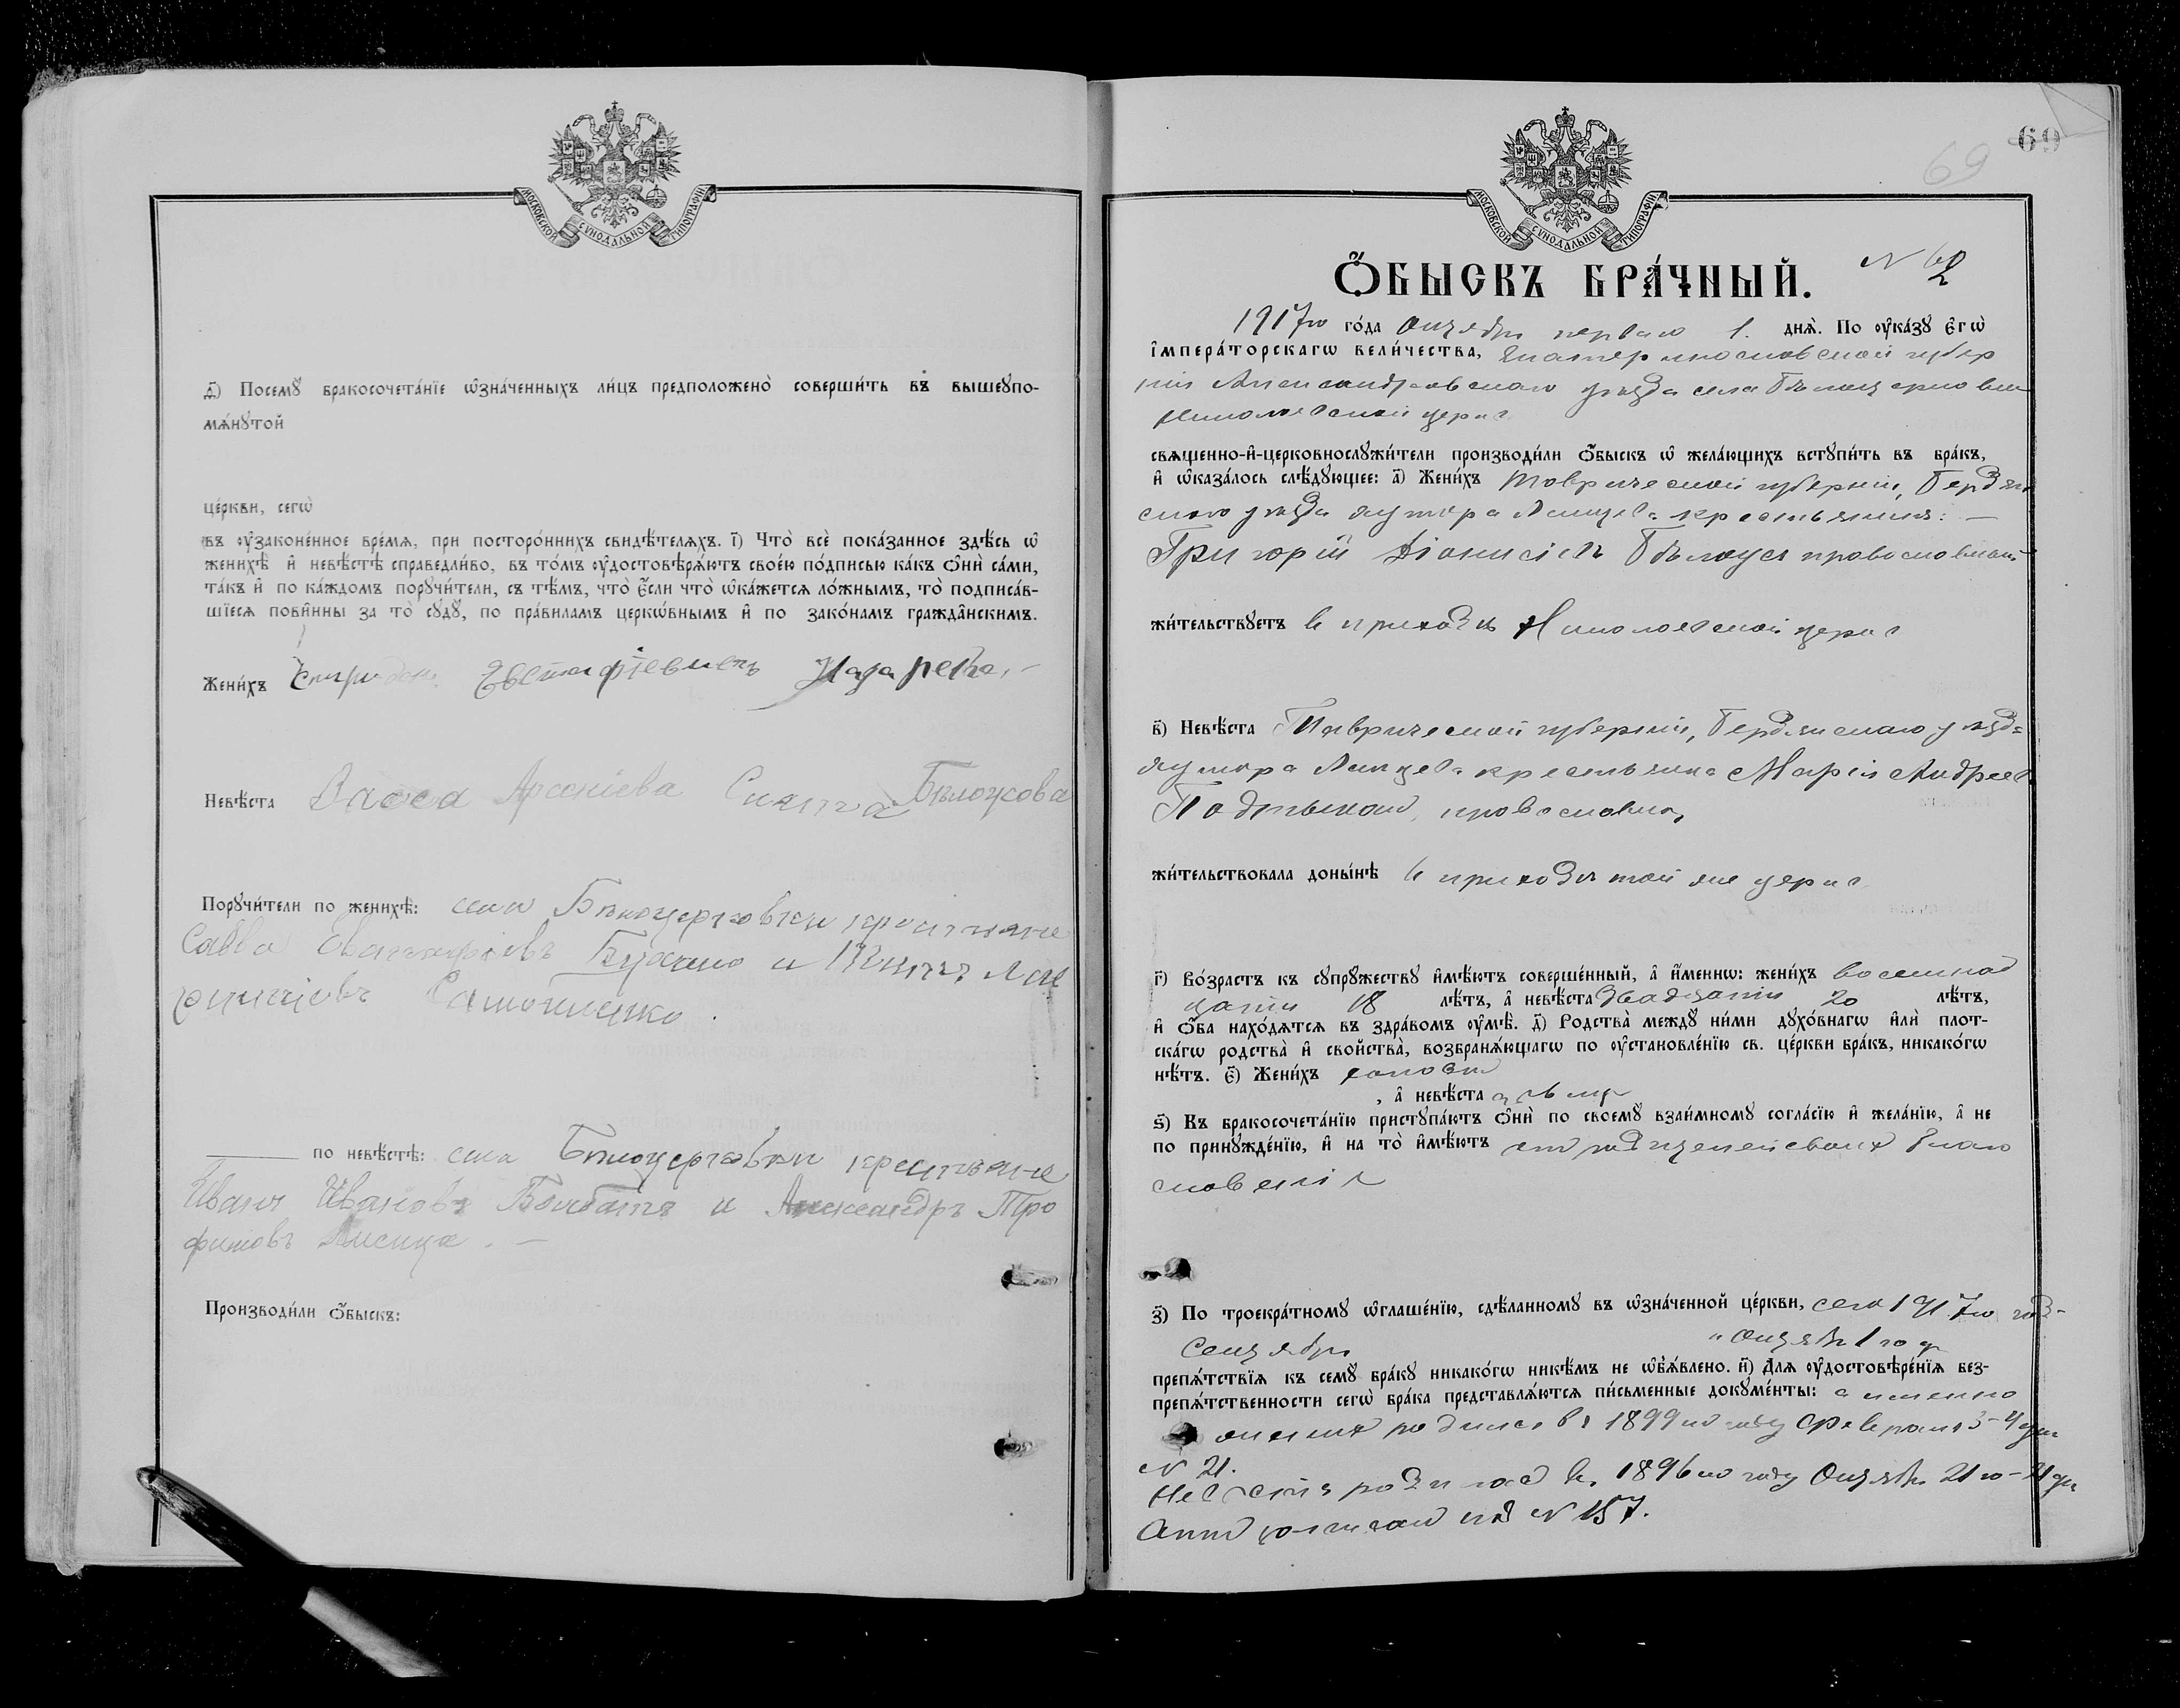 МОСКОВСКОЙ СѴНОДАЛЬНОЙ ТИПОГРАФІИ
ѳ҃) Посемꙋ̀ бракосочета́нїе ѡ҆зна́ченныхъ ли́цъ предположено̀ соверши́ть въ вышеꙋпо-
мѧ́нꙋтой
це́ркви, сегѡ̀
въ ᲂу҆зако́нен́ное вре́мѧ, при посторо́ннихъ свидѣ́телѧхъ. і҃) Что̀ всѐ пока́занное здѣ́сь ѡ҆
женихѣ̀ и҆ невѣ́стѣ справедли́во, въ то́мъ ᲂу҆достовѣрѧ́ютъ свое́ю по́дписью ка́къ ѻ҆нѝ са́ми,
та́къ и҆ по ка́ждомъ порꙋчи́тели, съ тѣ́мъ, что̀ є҆́сли что̀ ѡ҆ка́жетсѧ ло́жнымъ, то̀ подписа́в-
шїесѧ пови́нны за то̀ сꙋдꙋ̀, по пра́виламъ церкѡ́внымъ и҆ по зако́намъ гражда̑нскимъ.
Жени́хъ Спиридонъ Евстафіевичъ Назаренко
Невѣ́ста Васса Арсеніева Бѣлоусова
Порꙋчи́тели по женихѣ̀: села Бѣлоцерковки крестьяне
Савва Евстафіевъ и
по невѣ́стѣ: села Бѣлоцерковки крестьяне
Иванъ Ивановъ и Александръ Тро
фимовъ Лисица
Производи́ли ѻ҆́быскъ:
69
69
МОСКОВСКОЙ СѴНОДАЛЬНОЙ ТИПОГРАФІИ
Ѻ҆́БЫСКЪ БРА́ЧНЫЙ. N 62
1917го го́да Октября перваго 1. днѧ̀. По ᲂу҆ка́зꙋ є҆гѡ̀
і҆мпера́торскагѡ вели́чества, Екатеринославской губер
ніи Александровскаго уѣзда села Бѣлоцерковки
Николаевской церкв
свѧще́нно-и҆-церковнослꙋжи́тели производи́ли ѻ҆́быскъ ѡ҆ жела́ющихъ встꙋпи́ть въ бра́къ,
и҆ ѡ҆каза́лось слѣ́дꙋющее: а҃) Жени́хъ Таврической губерніи, Бердян
скаго уѣзда хутора крестьянинъ
Григорій Діонисіевъ Бѣлоусъ православный
жи́тельствꙋетъ в приходѣ Николаевской церкв
в҃) Невѣ́ста Таврической губерніи, Бердянскаго уѣзда
хутора крестьянка Марія Андреев
православная
жи́тельствовала доны́нѣ в приходѣ той же церкв
г҃) Во́зрастъ къ сꙋпрꙋ́жествꙋ и҆мѣ́ютъ соверше́нный, а҆ и҆́меннѡ: жени́хъ восемнад
цати 18 лѣ́тъ, а҆ невѣ́ста двадцати 20 лѣ́тъ,
и҆ ѻ҆́ба нахо́дѧтсѧ въ здра́вомъ ᲂу҆мѣ̀. д҃) Родства̀ междꙋ ни́ми дꙋхо́внагѡ и҆лѝ плот-
ска́гѡ родства̀ и҆ свойства̀, возбранѧ́ющагѡ по ᲂу҆становле́нїю св. це́ркви бра́къ, никако́гѡ
нѣ́тъ. є҃) Жени́хъ холостъ
, а҆ невѣ́ста дѣвица
ѕ҃) Къ бракосочета́нїю пристꙋпа́ютъ ѻ҆нѝ по своемꙋ̀ взаи́мномꙋ согла́сїю и҆ жела́нїю, а҆ не
по принꙋжде́нїю, и҆ на то̀ и҆мѣ́ютъ отъ родителей своихъ благо
словеніе
з҃) По троекра́тномꙋ ѡ҆глаше́нїю, сдѣ́ланномꙋ въ ѡ҆зна́ченной це́ркви, сего 1917го год
Сентября Октября 1го д
препѧ́тствїѧ къ семꙋ̀ бра́кꙋ никако́гѡ никѣ́мъ не ѡ҆б̾ѧ́влено. и҃) Длѧ ᲂу҆достовѣре́нїѧ без-
препѧ́тственности сегѡ̀ бра́ка представлѧ́ютсѧ пи́сьменные докꙋме́нты: а именно
женихъ родился въ 1899мъ году Февраля 3-4 дня
N 21.
Невѣста родилась въ 1896мъ году Октября 21го-21 дня
Актъ подъ N 157.